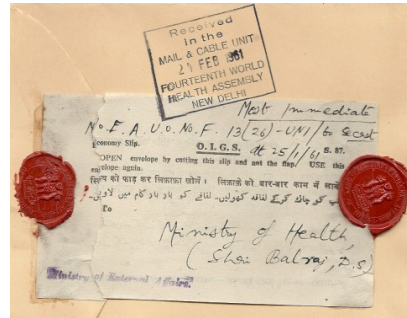 Received
in the
MAIL & CABLE UNIT
21 FEB 1961
FOURTEENTH WORLD
HEALTH ASSEMBLY
NEW DELHI
Most Immediate
No. E.A.U.O. No. F. 13(26)-UNI/60 Secret
Economy Slip. O.I.G.S. dt 25/1/61 S. 87.
OPEN envelope by cutting this slip and not the flap. USE this
envelope again.
स्लिप को फाड़ कर लिफ़ाफ़ा खोलें। लिफ़ाफ़े को बार-बार काम में लायें
کو چاک کرکے لفافہ کھولیں۔ لفافے کو بار بار کام میں لائیں۔
To
Ministry of Health,
(Shri Balraj, D.S)
Ministry of External Affairs.